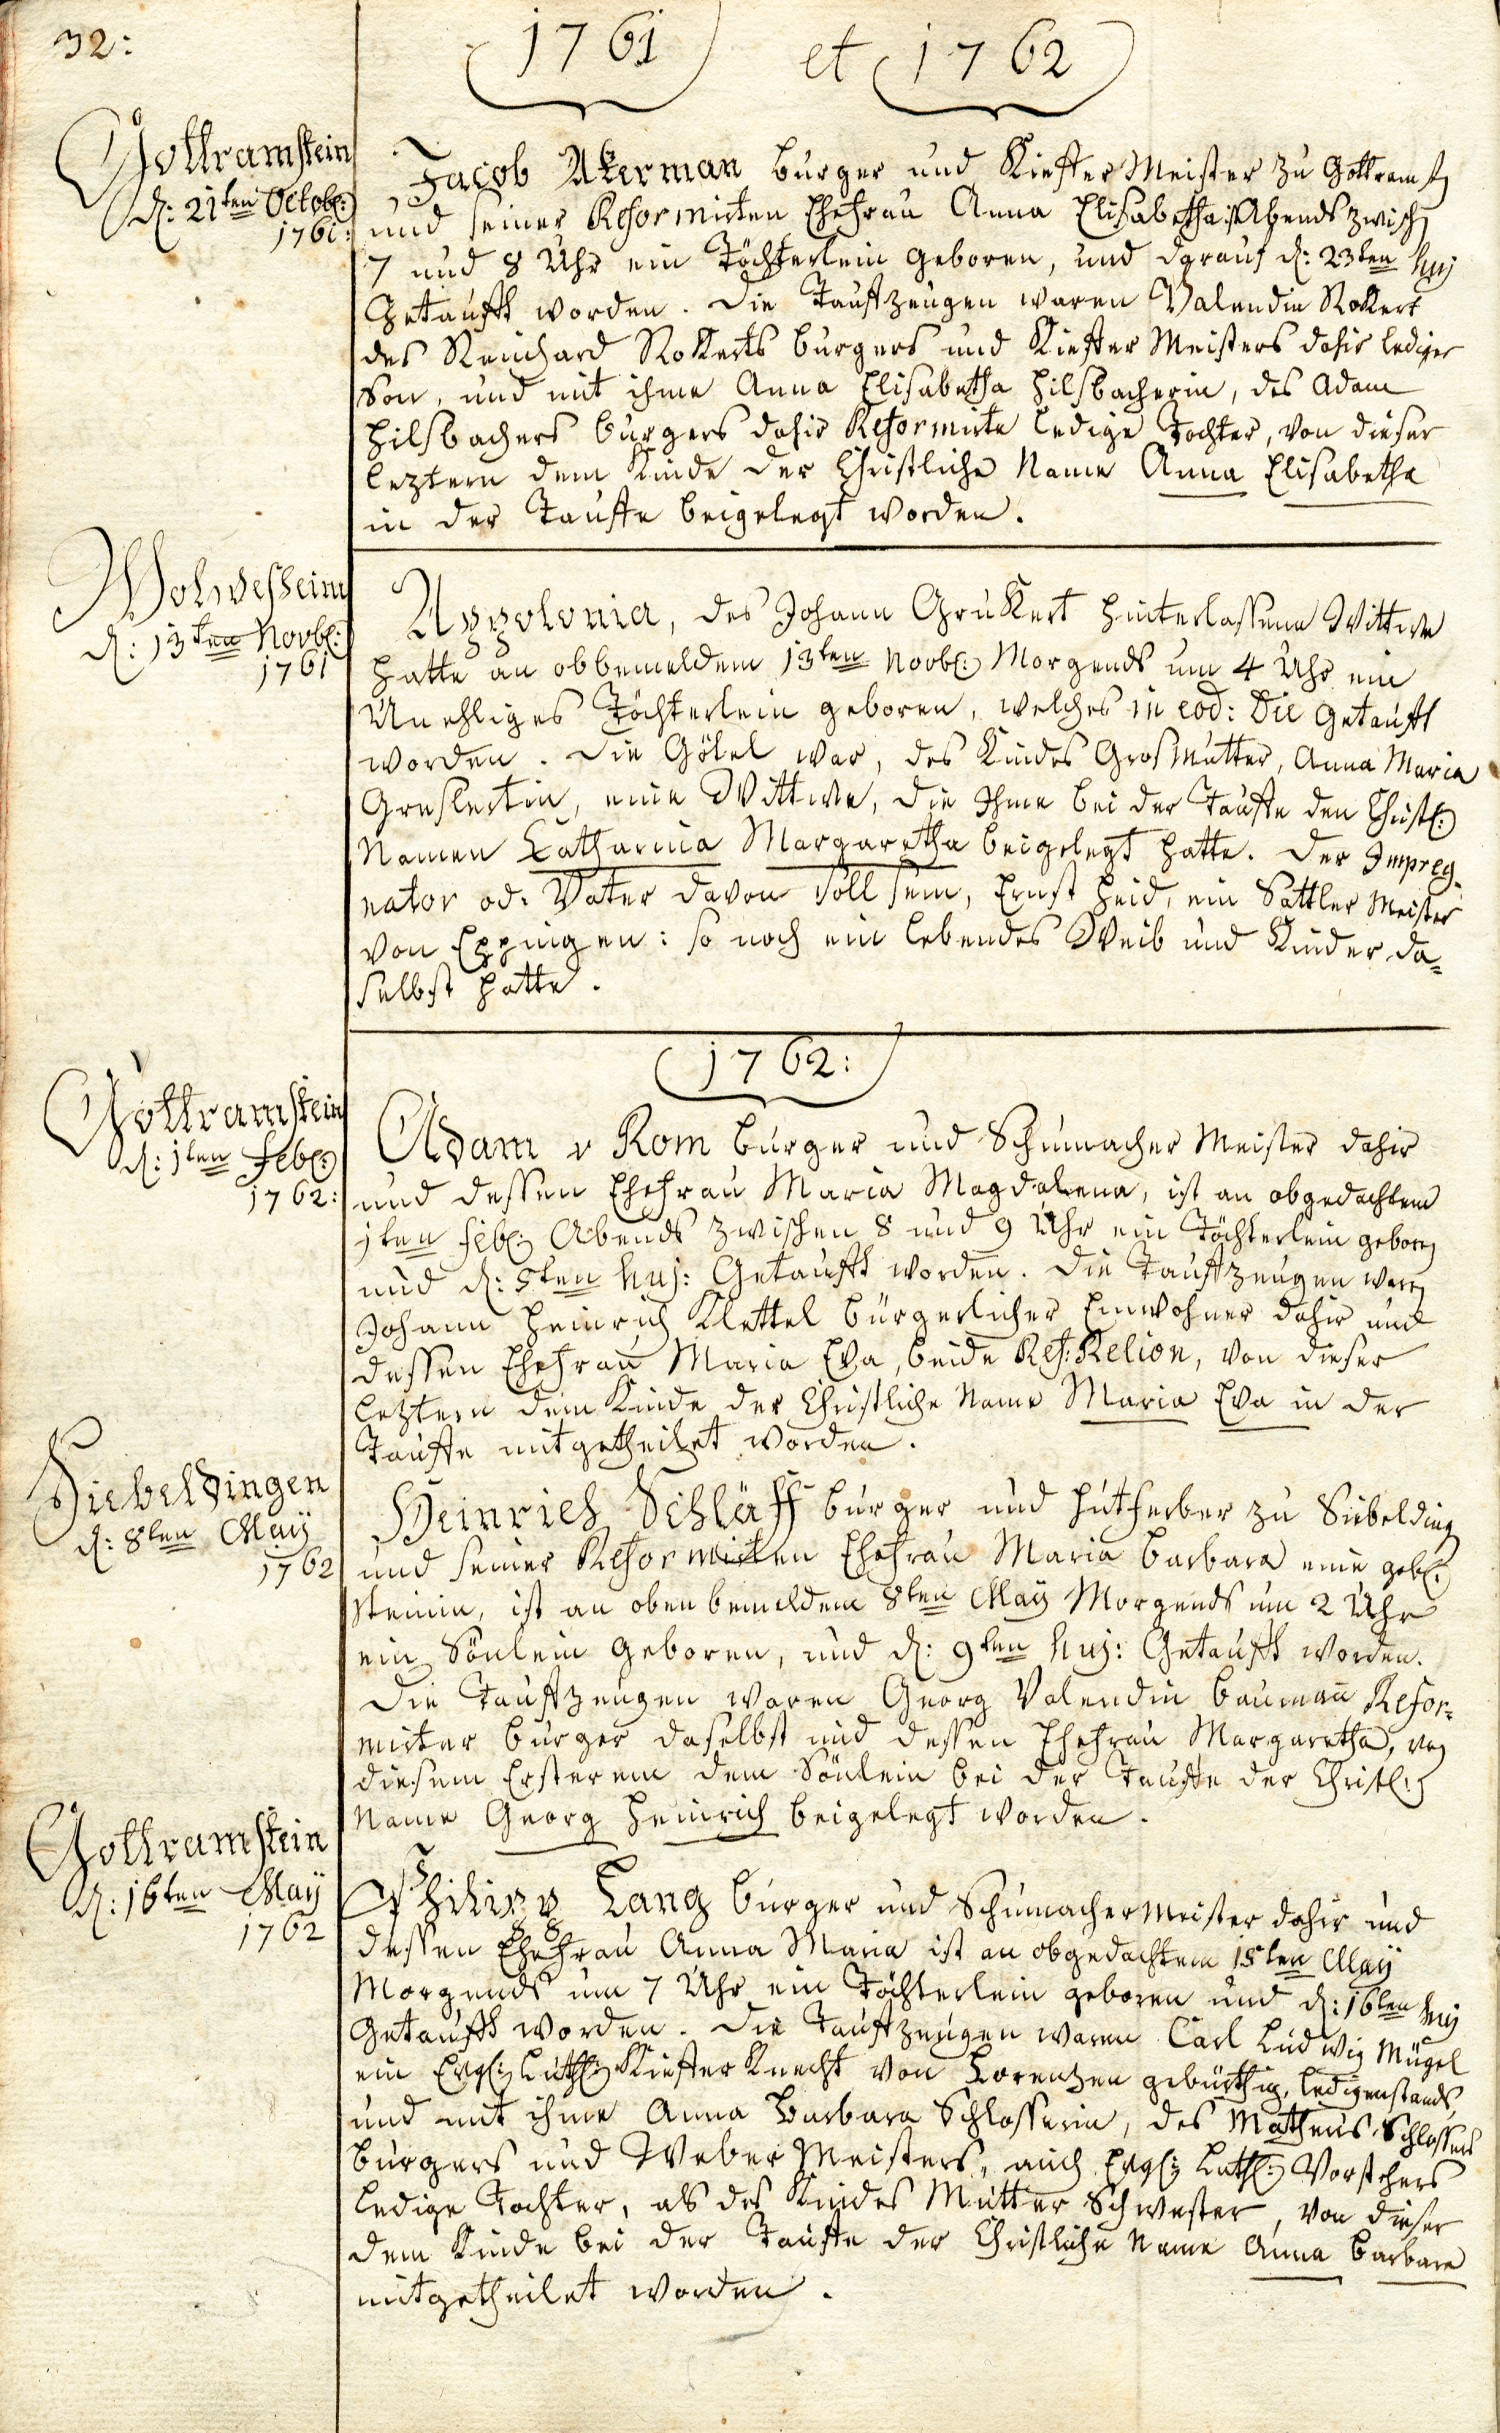 32:
1761 et 1762
Gottramstein
d: 21ten Octob:
1761:
Jacob Akerman burger und Kieffer Meister zu Gottramst
und seiner Reformirten Ehefrau Anna Elisabetha ist Abends zwisch
7 und 8 Uhr ein Töchterlein geboren, und darauf d: 23ten huj
Getaufft worden. Die Tauffzeugen waren Valendin Rokert
des Reinhard Rokerts burgers und Kieffer Meisters dahir lediger
Son, und mit ihme Anna Elisabetha Hilsbacherin, des Adam
Hilsbachers burgers dahir Reformirte ledige Tochter, von dieser
leztern dem Kinde der Christliche Name Anna Elisabetha
in der Tauffe beigelegt worden.
Wolmesheim
d: 13ten Novb:
1761
Appolonia, des Johann Grukert hinterlassene Wittwe
hatte an obbemeldem 13ten Novb: Morgends um 4 Uhr ein
Unehliges Töchterlein geboren, welches in eod: Die getaufft
worden. Die Götel war, des Kindes Großmutter, Anna Maria
eine Wittwe, die Ihme bei der Tauffe den Christl:
Namen Catharina Margaretha beigelegt hatte. Der Impreg-
nator od. Vater davon soll sein, Ernst Heid, ein Sattler Meister
von Eppingen: so noch ein lebendes Weib und Kinder da=
selbst hatte.
1762:
Gottramstein
d: 1ten Feb:
1762:
Adam v Rom burger und Schumacher Meister dahir
und dessen Ehefrau Maria Magdalena, ist an obgedachtem
1ten feb: Abends zwischen 8 und 9 Uhr ein Töchterlein geboren
und d: 5ten huj: Getaufft worden. Die Tauffzeugen waren
Johann Heinrich Klettel bürgerlicher Einwohner dahir und
dessen Ehefrau Maria Eva, beide Ref: Relion, von dieser
leztern dem Kinde der Christliche Name Maria Eva in der
Tauffe mitgetheilet worden.
Siebeldingen
d: 8ten May
1762
Heinrich Schläff burger und Hutferber zu Siebelding
und seiner Reformirten Ehefrau Maria Barbara eine geb:
Steinin, ist an oben bemeldem 8ten May Morgends um 2 Uhr
ein Sönlein geboren, und d: 9ten huj: Getaufft worden.
Die Tauffzeugen waren Georg Valendin Baumañ Refor=
mirter burger daselbst und dessen Ehefrau Margaretha, von
diesem Ersterem dem Sönlein bei der Tauffe der Christl:
Name Georg Heinrich beigelegt worden.
Gottramstein
d: 16ten May
1762
Philipp Lang burger und Schumacher Meister dahir und
dessen Ehefrau Anna Maria ist an obgedachtem 15ten May
Morgends um 7 Uhr ein Töchterlein geboren und d: 16ten huj
Getaufft worden. Die Tauffzeugen waren Carl Ludwig Mügel
ein Evgl: Luthl: Kieffer Knecht von Lorentzen gebürthig, ledigenstands,
und mit ihme Anna Barbara Schlosserin, des Matheus Schlossers
burgers und Weber Meisters, auch Evgl: Luthl: Vorstehers
ledige Tochter, als des Kindes Mutter Schwester, von dieser
dem Kinde bei der Tauffe der Christliche Name Anna Barbara
mitgetheilet worden.